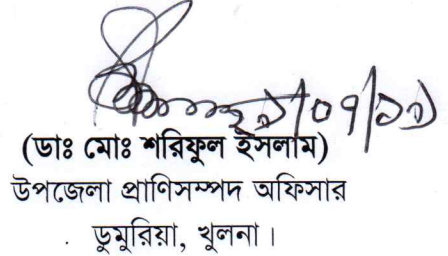 (ডাঃ মোঃ শরিফুল ইসলাম)
উপজেলা প্রাণিসম্পদ অফিসার
ডুমুরিয়া, খুলনা।